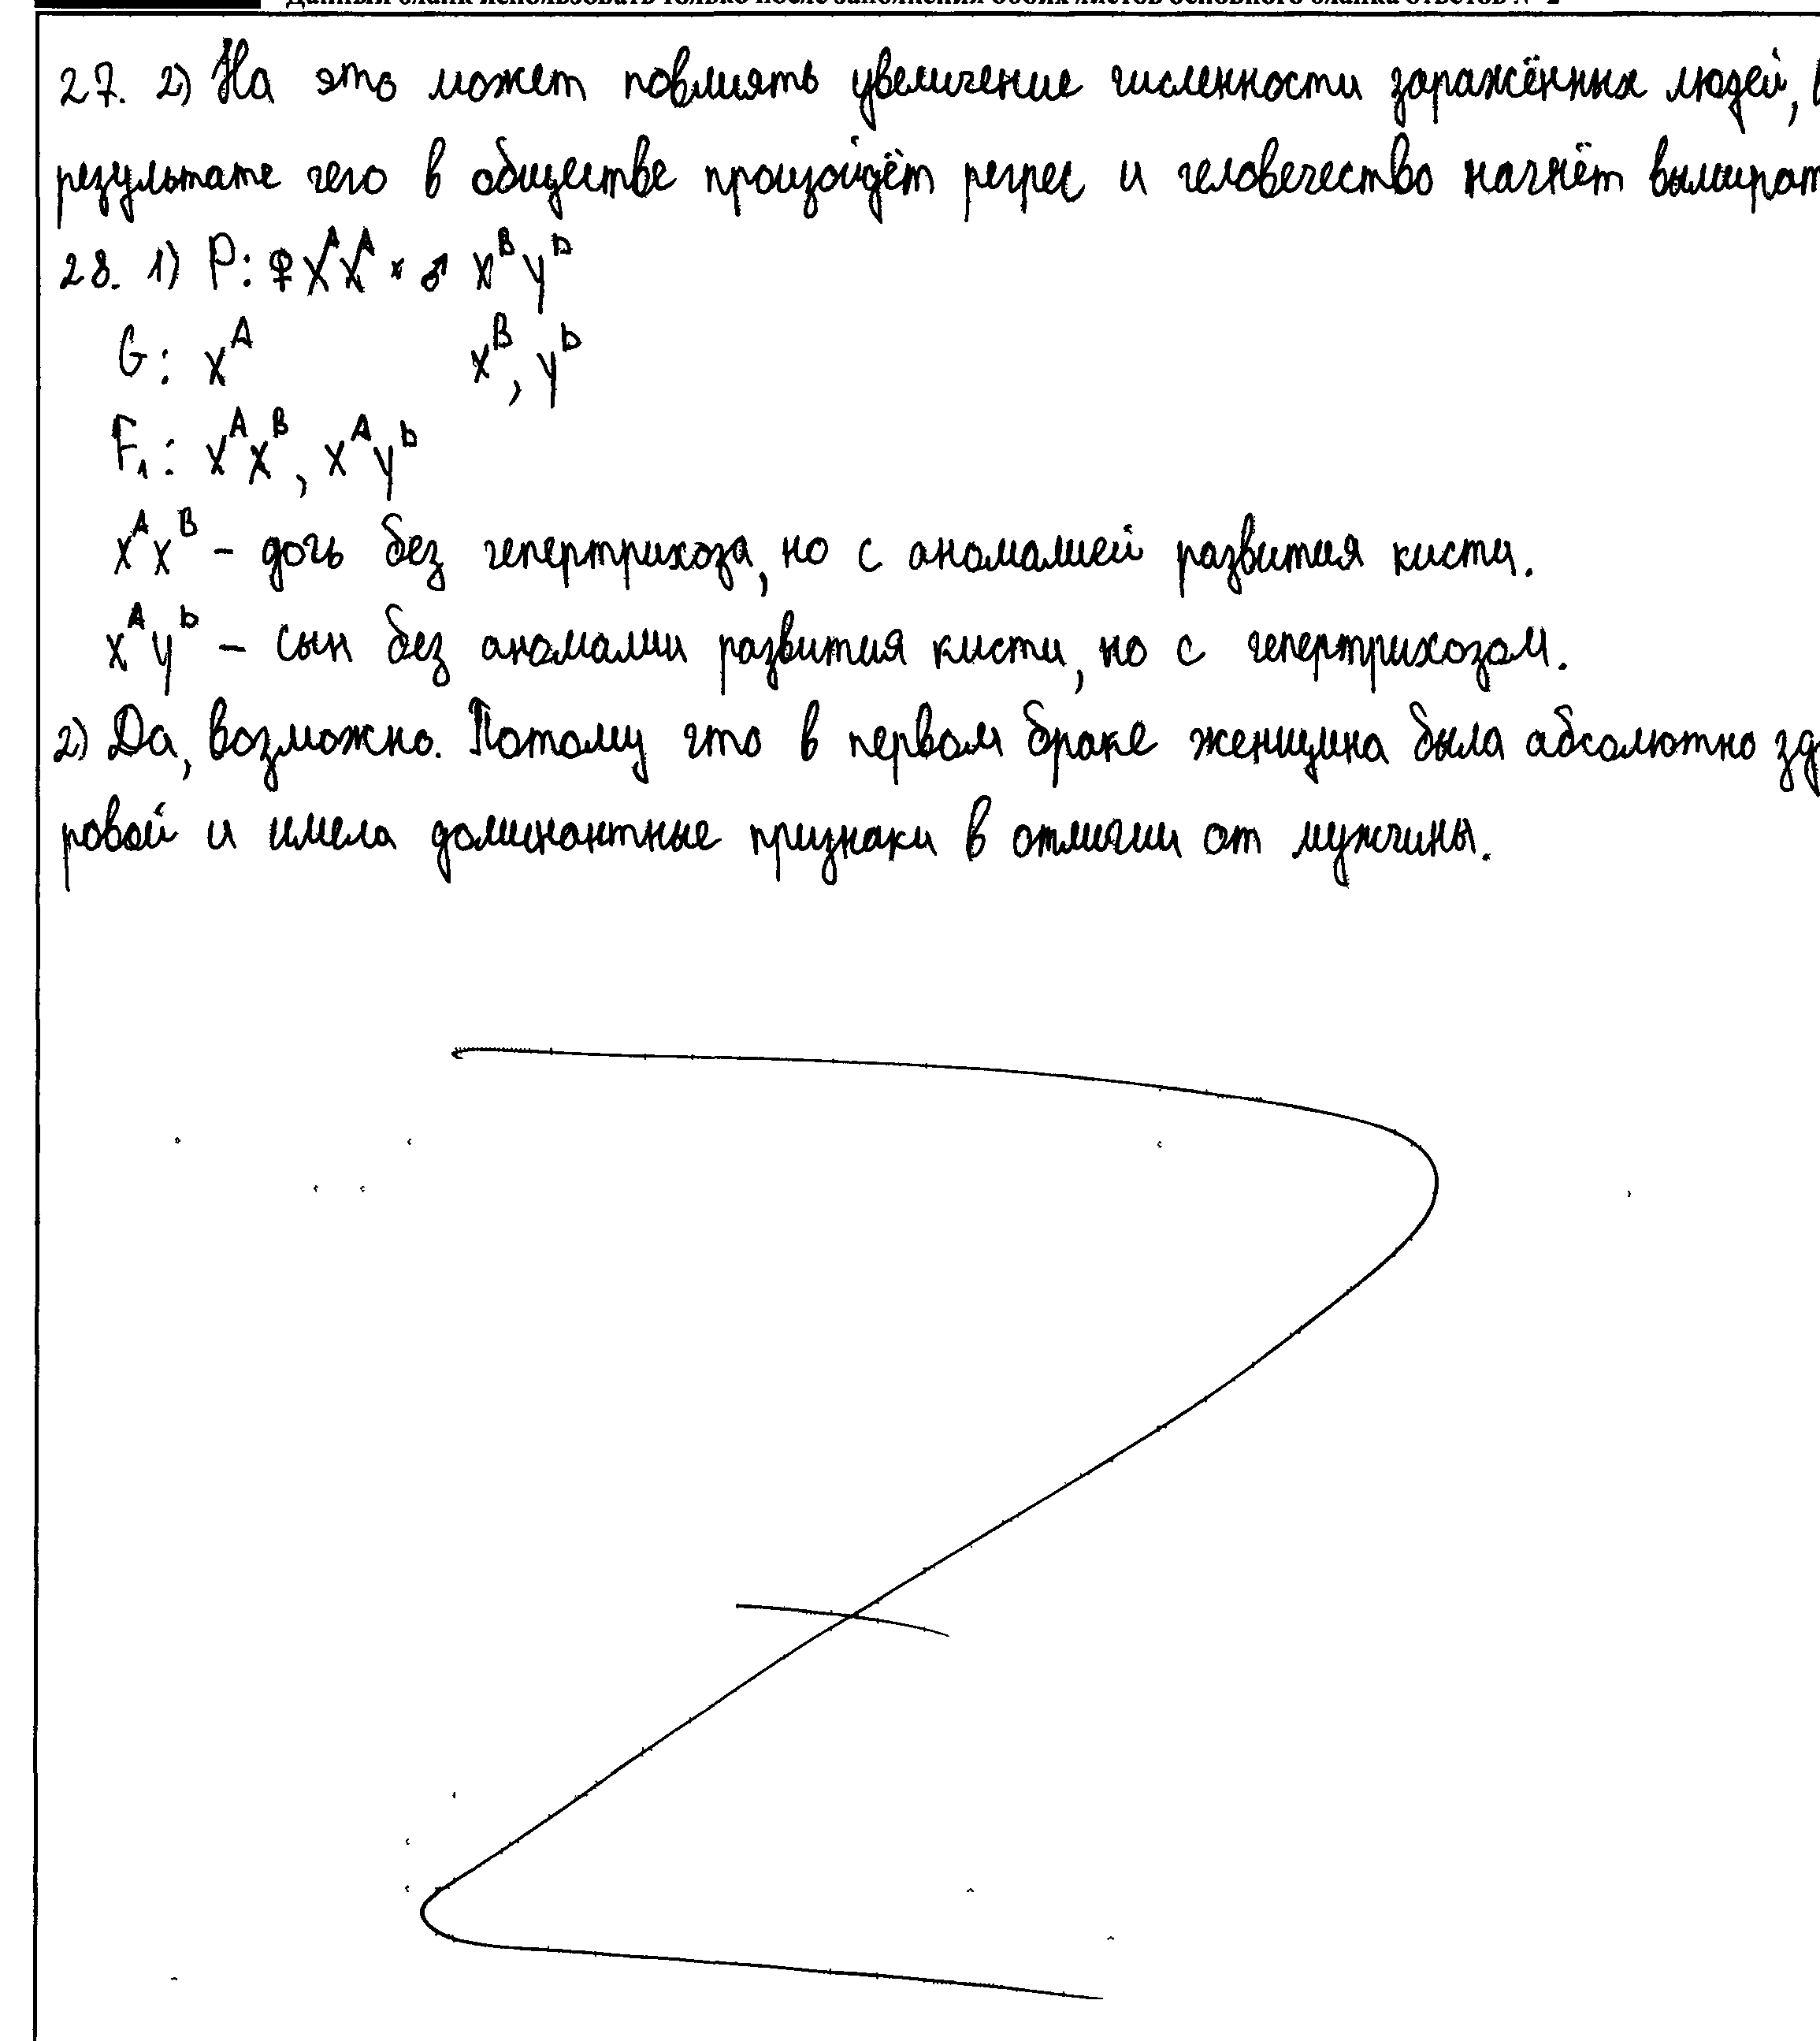 Данный бланк использовать только после заполнения обоих листов основного бланка ответов № 2
27. 2) На это может повлиять увеличение численности заражённых людей, в
результате чего в обществе произойдёт регрес и человечество начнёт вымират
28. 1) P: ♀ X^A X^A × ♂ X^B Y^D
G: X^A X^B, Y^b
F₁: X^A X^B, X^A Y^b
X^A X^B – дочь без гепертрихоза, но с аномалией развития кисти.
X^A Y^b – сын без аномалии развития кисти, но с гепертрихозом.
2) Да, возможно. Потому что в первом браке женщина была абсолютно здо
ровой и имела доминантные признаки в отличии от мужчины.